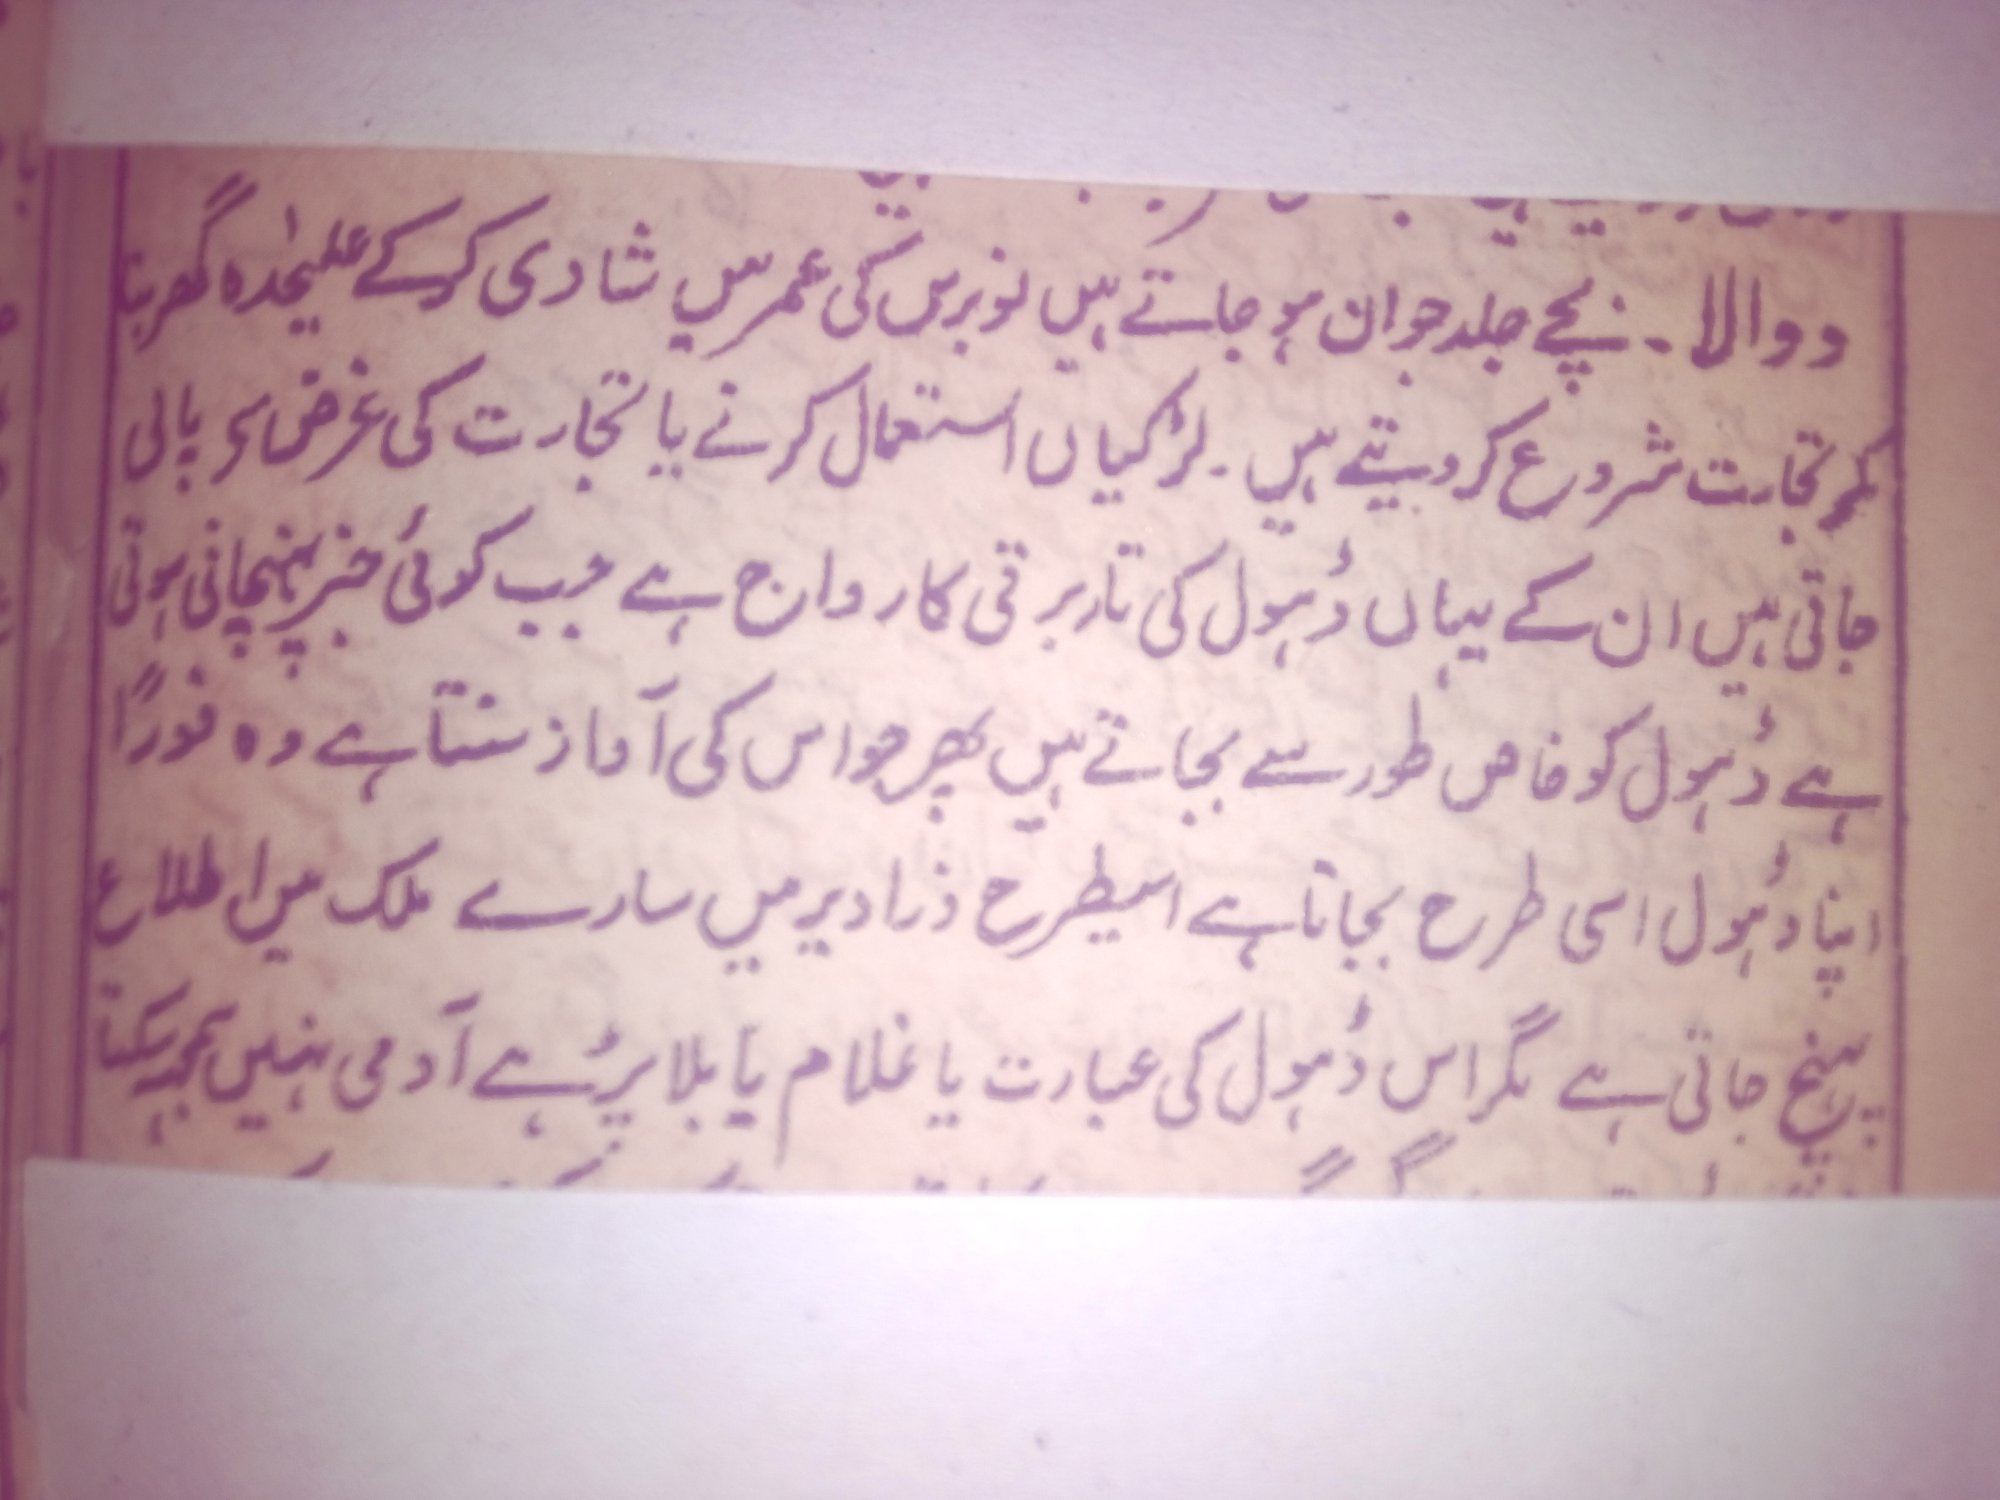 ووالا ۔ بچے جلد جوان ہو جاتے ہیں نو برس کی عمر میں شادی کرکے علیحٰدہ گھر بنا
کر تجارت شروع کر دیتے ہیں ۔ لڑکیاں استعمال کرنے یا تجارت کی غرض سے پالی
جاتی ہیں ان کے یہاں ڈہول کی تار برقی کا رواج ہے جب کوئی خبر پہنچانی ہوتی
ہے ڈہول کو خاص طور سے بجاتے ہیں پھر جو اس کی آواز سنتا ہے وہ فوراً
اپنا ڈہول اسی طرح بجاتا ہے اسیطرح ذرا دیر میں سارے ملک میں اطلاع
پہنچ جاتی ہے مگر اس ڈہول کی عبارت یا غلام یا بلا پڑہے آدمی نہیں سمجہ سکتا